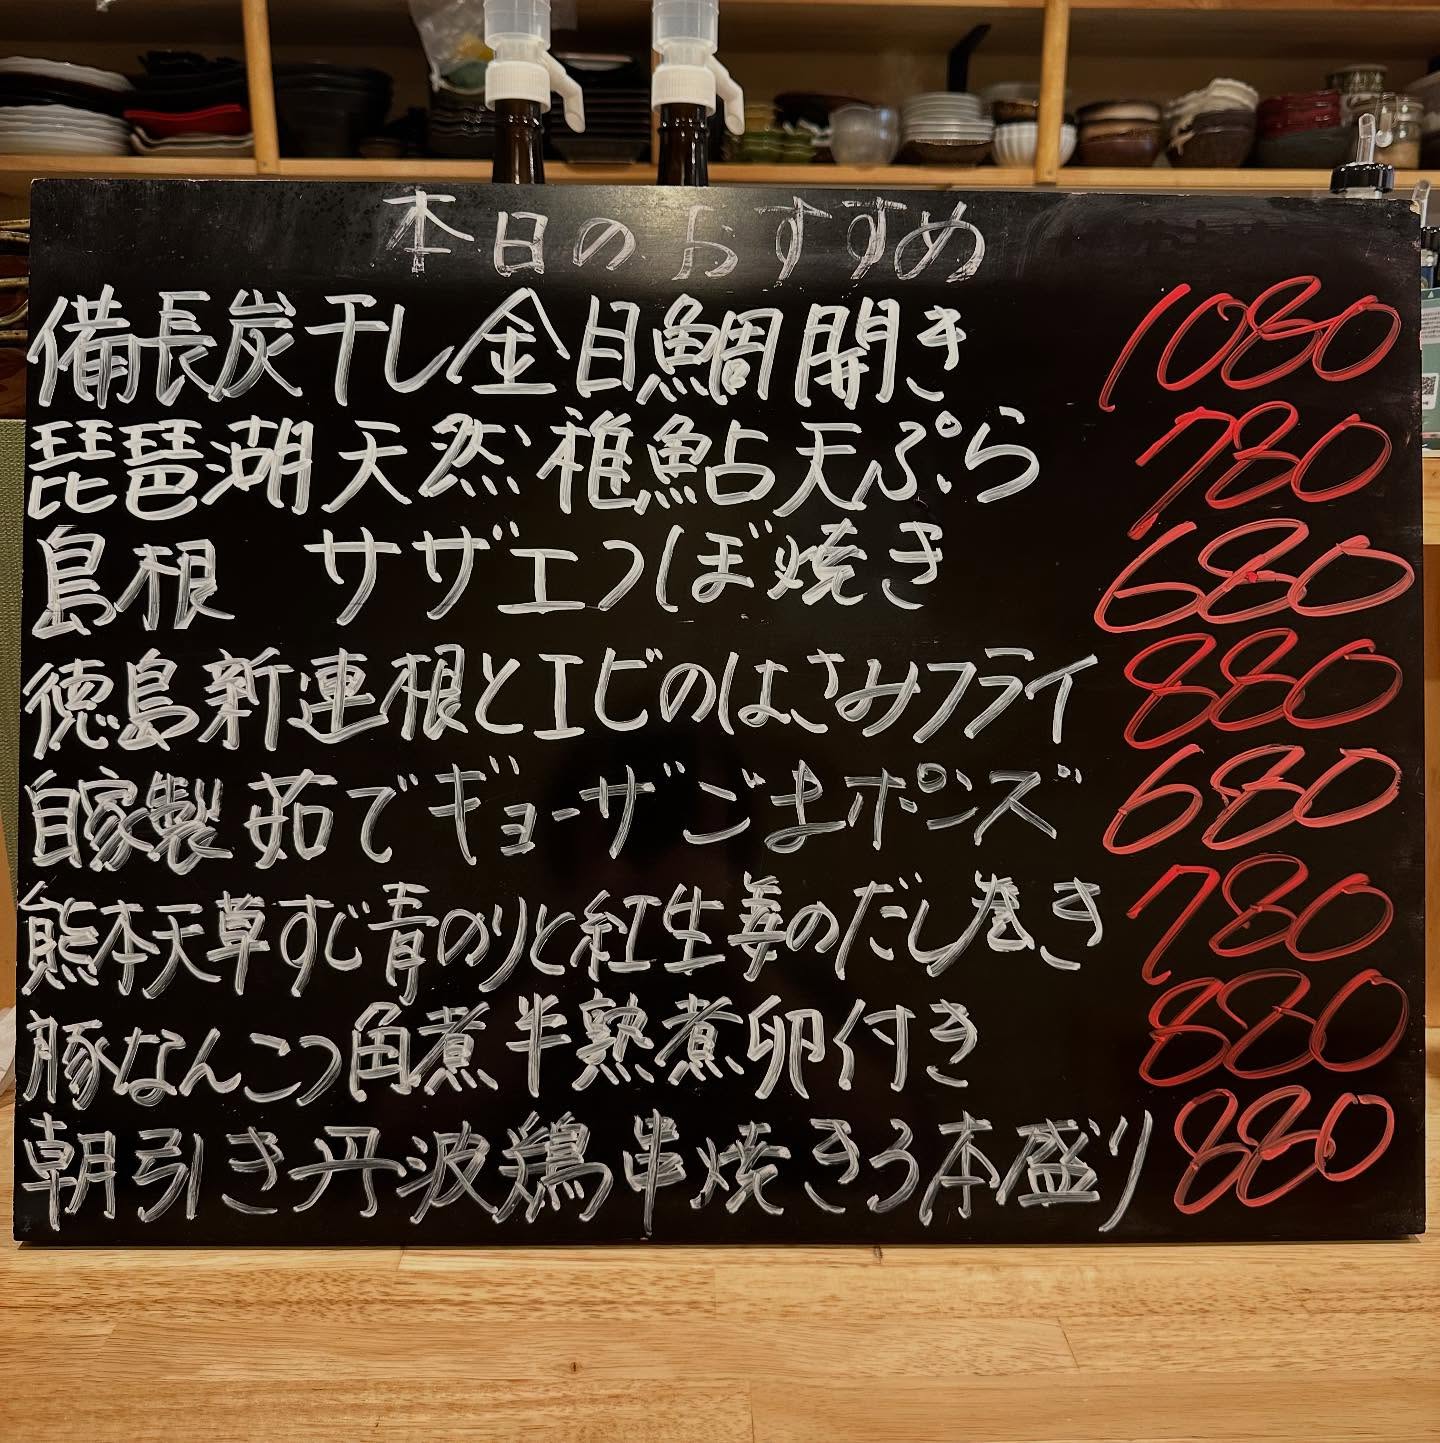 本日のおすすめ
備長炭干し金目鯛開き 1080
琵琶湖天然稚鮎天ぷら 780
島根 サザエつぼ焼き 680
徳島新連根とエビのはさみフライ 880
自家製茹でギョーザごまポンズ 680
熊本天草すじ青のりと紅生姜のだし巻き 780
豚なんこつ角煮半熟煮卵付き 880
朝引き丹波鶏串焼き3本盛り 880